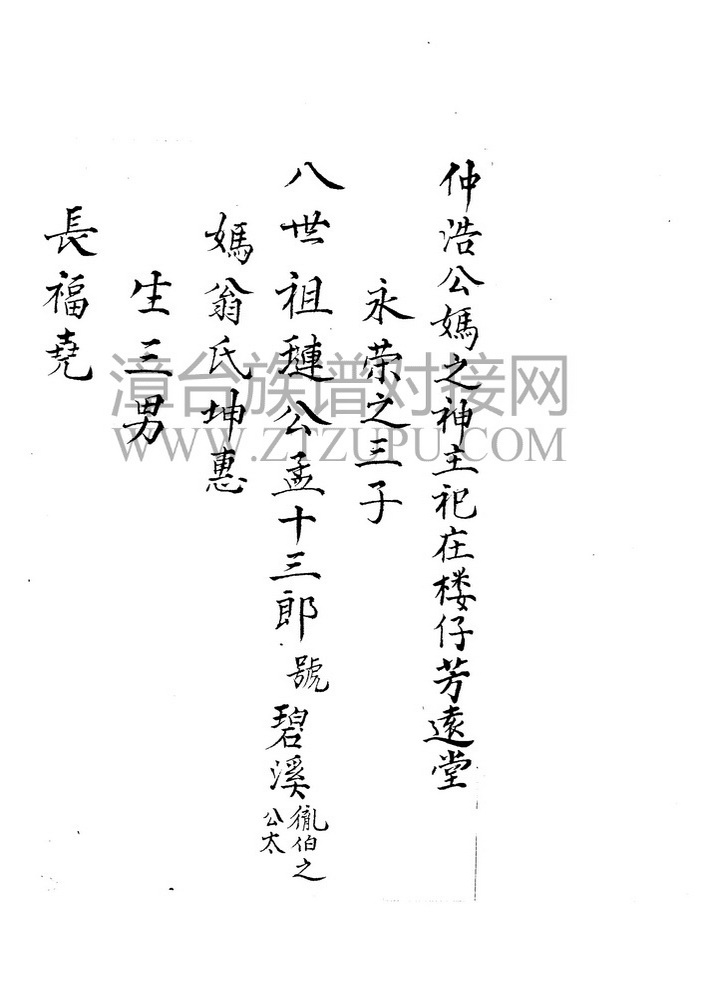 仲浩公媽之神主祀在楼仔芳遠堂
永荣之三子
八世祖璉公孟十三郎號碧溪
胤伯之
公太
媽翁氏坤惠
生三男
長福堯
漳台族谱对接网
WWW.ZTZUPU.COM